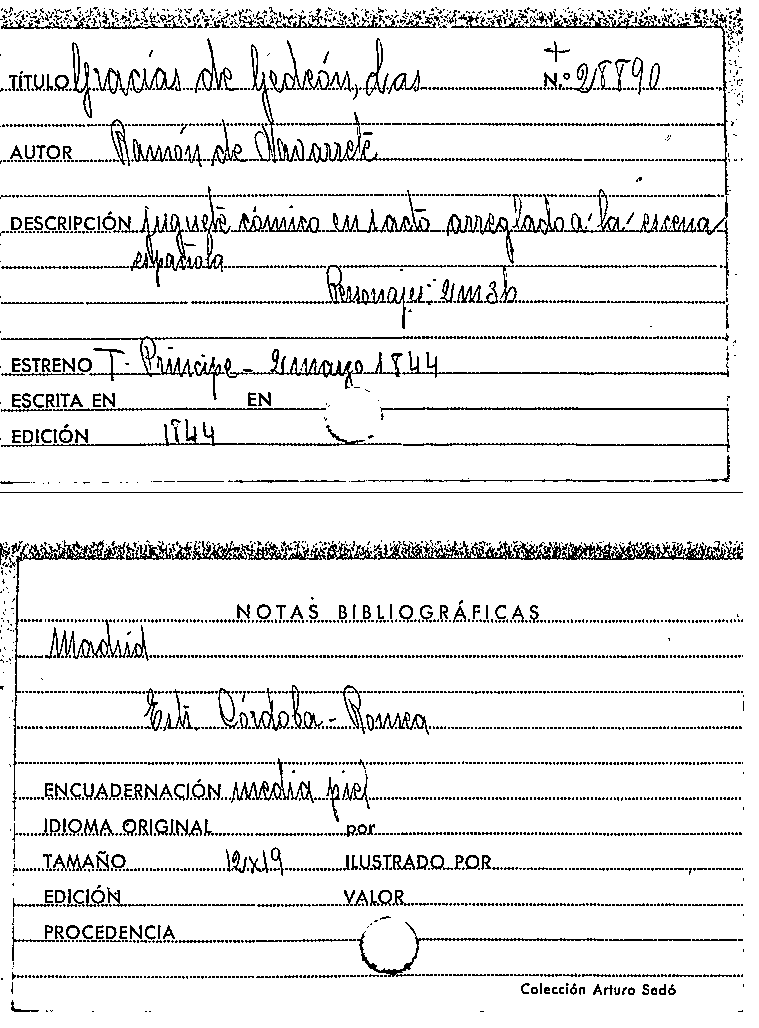 TÍTULO Gracias de Gedeón, Las
+
N.º 28890
AUTOR Ramón de Navarrete
DESCRIPCIÓN juguete cómico en 1 acto arreglado a la escena
española
Personajes: 2m3h
ESTRENO T. Príncipe - 2 mayo 1844
ESCRITA EN EN
EDICIÓN 1844
NOTAS BIBLIOGRÁFICAS
Madrid
Córdoba - Romea
ENCUADERNACIÓN media piel
IDIOMA ORIGINAL por
TAMAÑO 12x19 ILUSTRADO POR
EDICIÓN VALOR
PROCEDENCIA
Colección Arturo Sedó